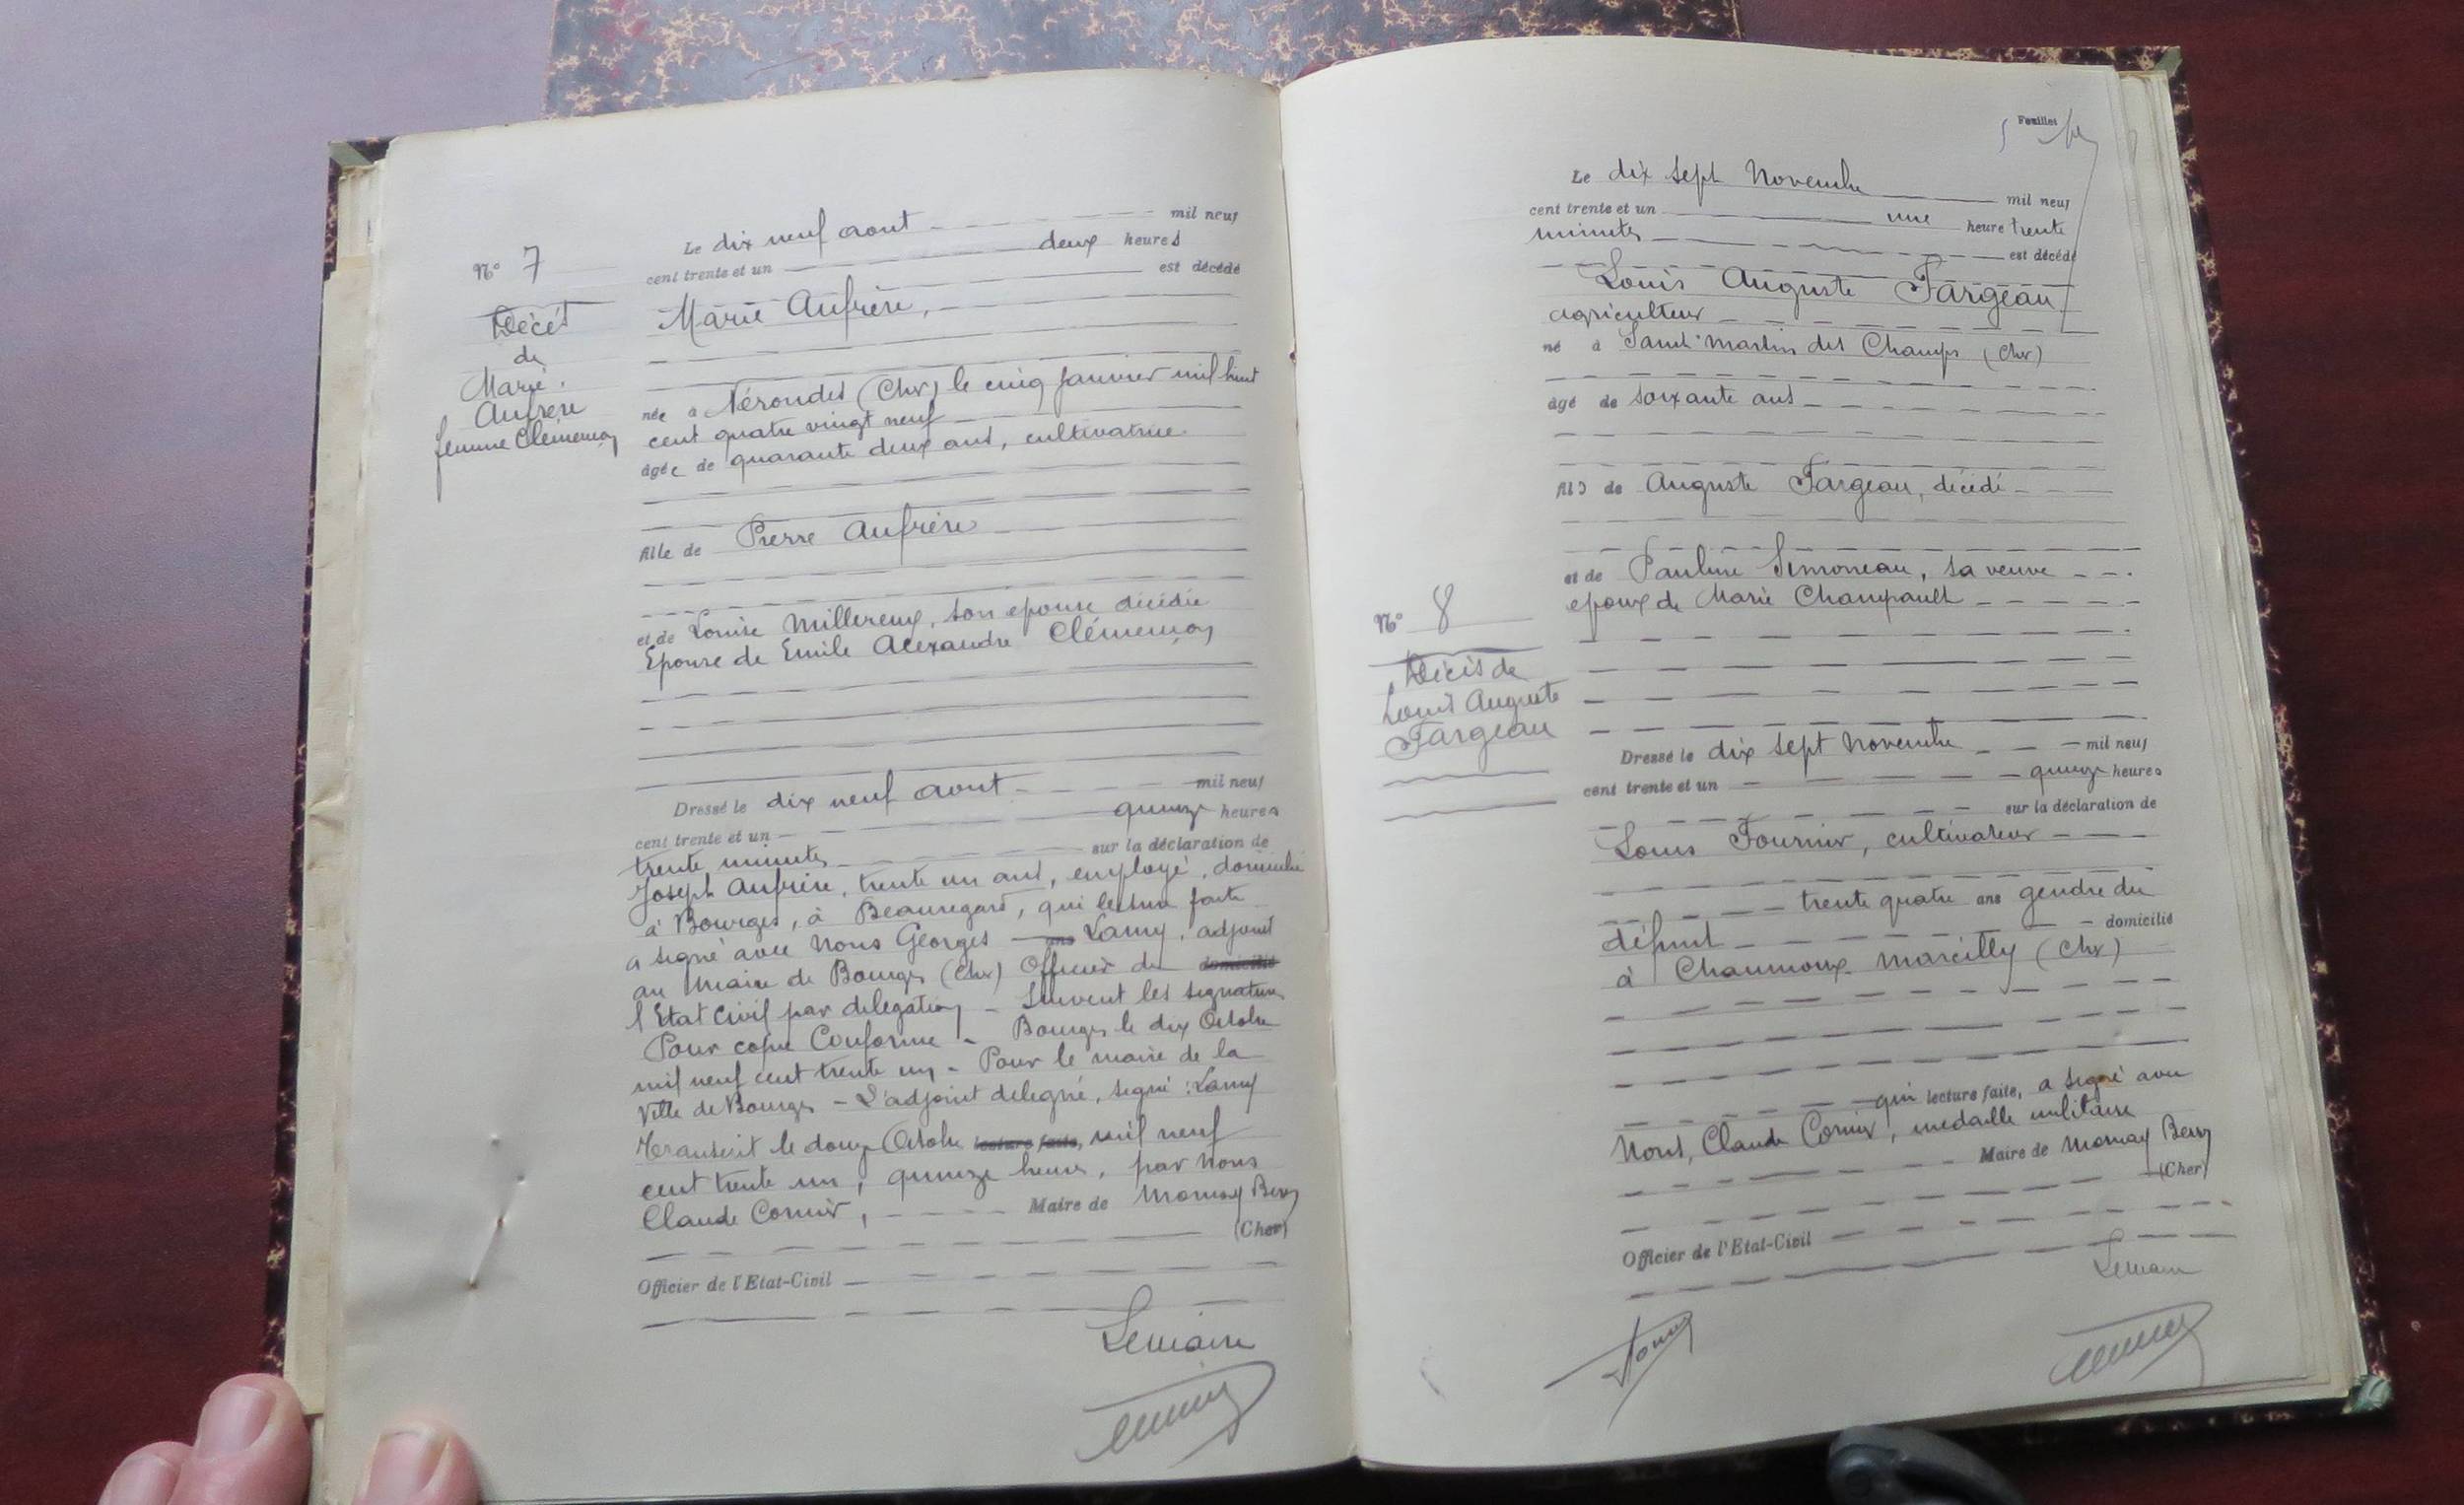 N° 7
Décès
de
Marie
Aufrère
femme Clémençon
Le dix neuf aout mil neuf
cent trente et un deux heures
est décédé
Marie Aufrère,
née à Nérondes (Cher) le cinq janvier mil huit
cent quatre vingt neuf
âgée de quarante deux ans, cultivatrice
fille de Pierre Aufrère
et de Louise Millereux, son epouse décédée
Epouse de Emile Alexandre Clémençon
Dressé le dix neuf aout mil neuf
cent trente et un quinze heures
trente minutes sur la déclaration de
Joseph Aufrère, trente un ans, employé, domicilié
à Bourges, à Beauregard, qui lecture faite
a signé avec Nous Georges ans Lamy, adjoint
au Maire de Bourges (Cher) Officier de domicilié
l'Etat Civil par delegation - Suivent les signatures
Pour copie Conforme - Bourges le dix Octobre
mil neuf cent trente un - Pour le maire de la
Ville de Bourges - L'adjoint delegué, signé : Lamy
Transcrit le douze Octobre lecture faite, mil neuf
cent trente un, quinze heures, par Nous
Claude Cornier, Maire de Mornay Berry
(Cher)
Officier de l'Etat-Civil
Lemaire
Feuillet
5
Le dix sept Novembre mil neuf
cent trente et un une heure trente
minutes est décédé
Louis Auguste Fargeau
agriculteur
né à Saint Martin des Champs (Cher)
âgé de soixante ans
fils de Auguste Fargeau, décédé
et de Pauline Simoneau, sa veuve
epoux de Marie Champault
N° 8
Décès de
Louis Auguste
Fargeau
Dressé le dix sept Novembre mil neuf
cent trente et un quinze heures
sur la déclaration de
Louis Fournier, cultivateur
trente quatre ans gendre du
défunt domicilié
à Chaumoux Marcilly (Cher)
qui lecture faite, a signé avec
Nous, Claude Cornier, médaille militaire
Maire de Mornay Berry
(Cher)
Officier de l'Etat-Civil
Lemaire